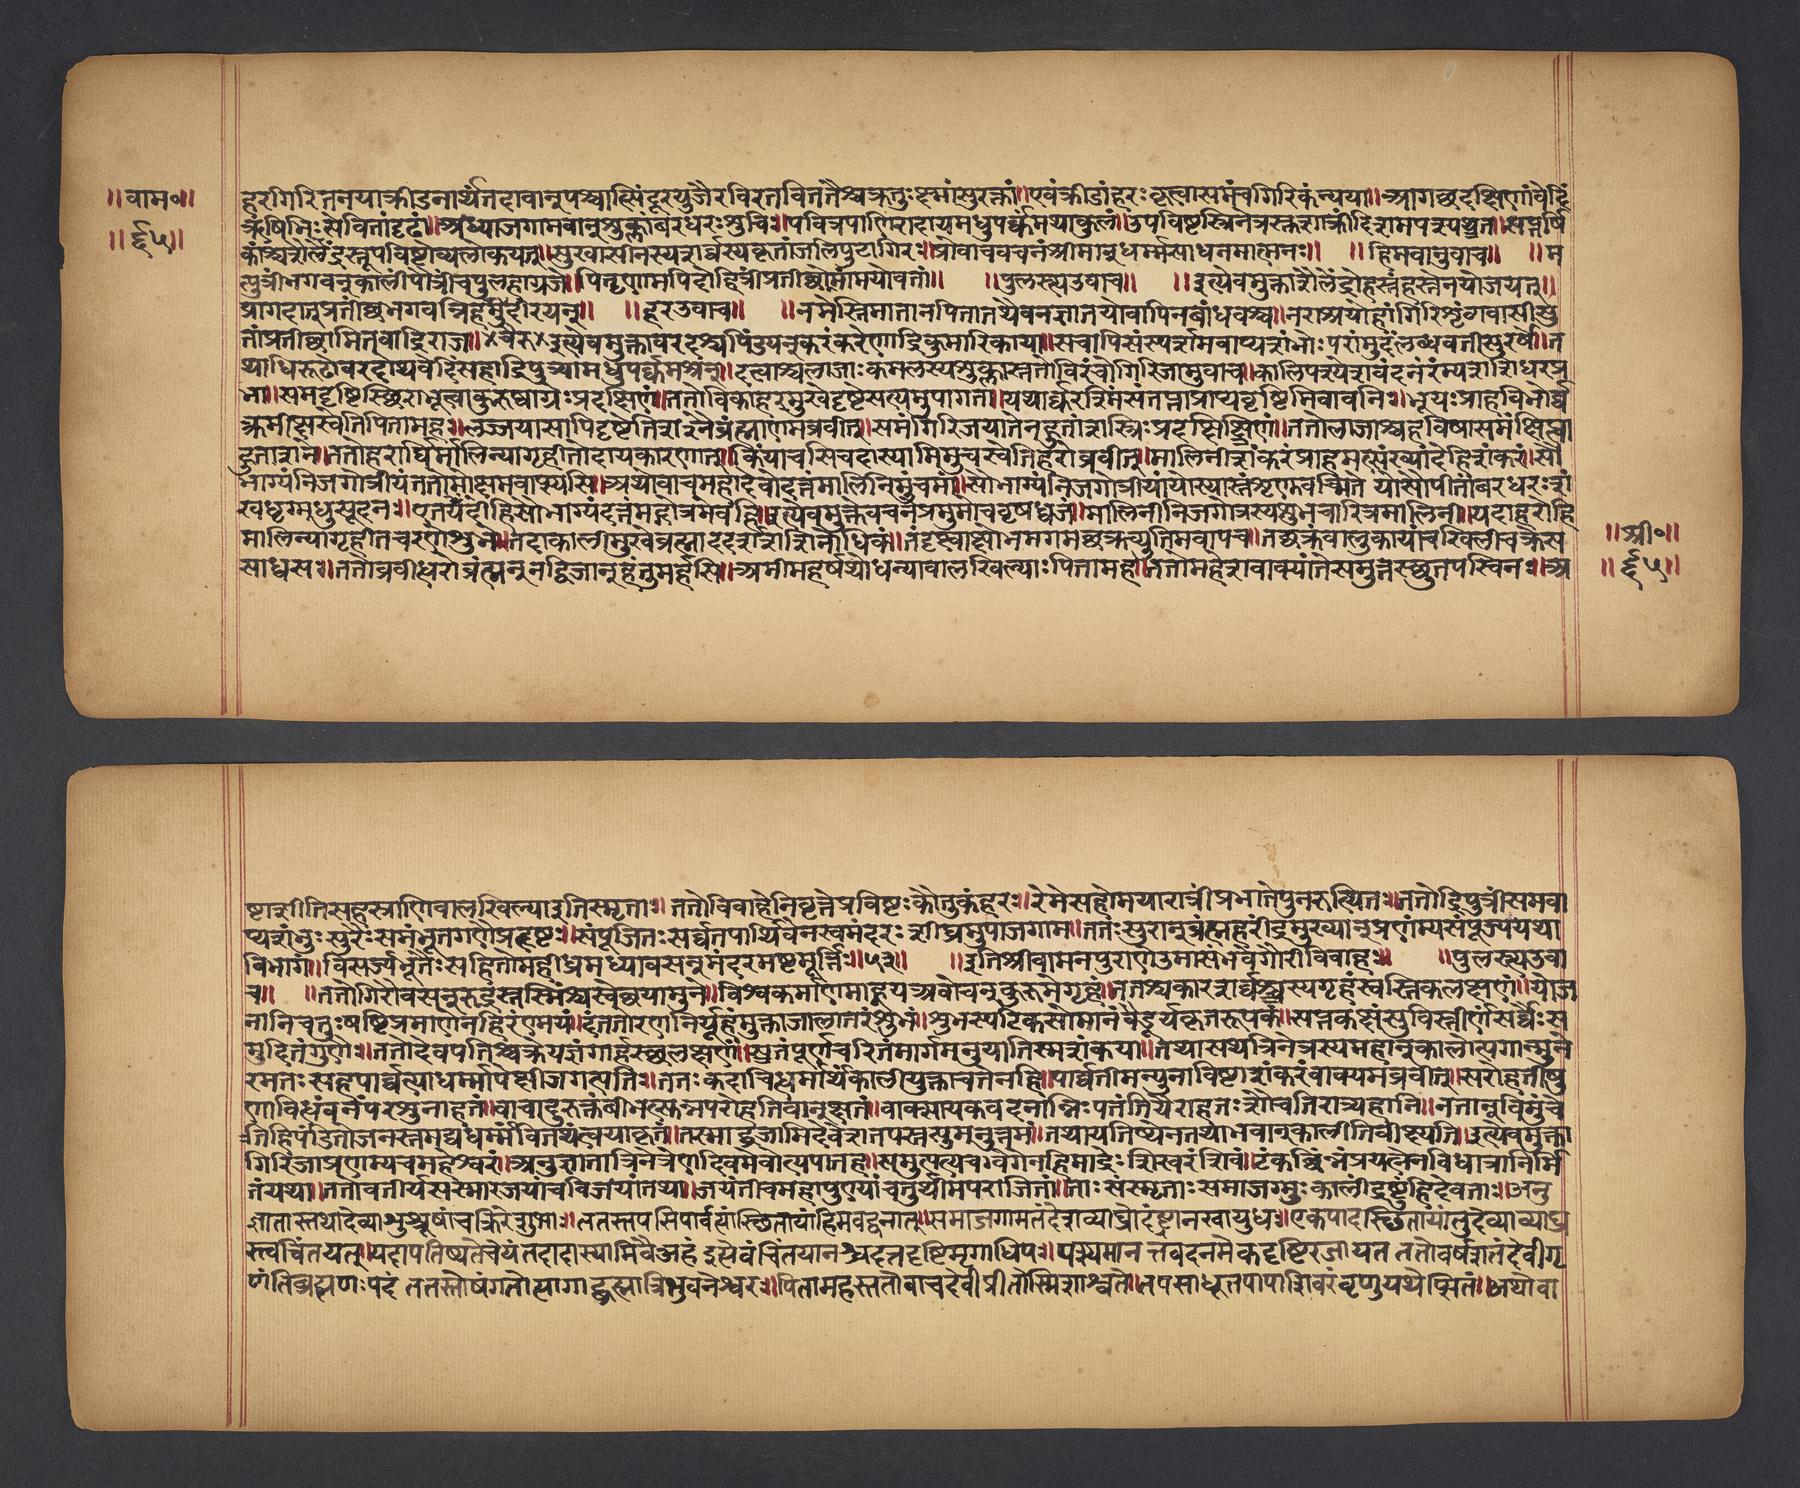 ॥वाम॰॥
॥६५॥
हरगिरितनयाक्रीडनार्थंतदावानुपश्चात्सिंदूरपुंजैरविरतविततैश्चक्रतुःक्ष्मांसुरक्तां॥एवंक्रीडांहरःकृत्वासमंचगिरिकंन्यया॥आगच्छद्दक्षिणांवेदिं
ऋषिभिःसेवितांदृढां॥अथाजगामवानुशुक्लांबरधरःशुचिः॥पवित्रपाणिरादायमधुपर्कमथाकुलं॥उपविष्टस्त्रिनेत्रस्तुशाक्रींदिशमपश्यत॥सप्तर्षि
कांश्चशैलेंद्रस्तूपविष्टोव्यलोकयत्॥सुखासीनस्यशर्वस्यकृतांजलिपुटोगिरः॥प्रोवाचवचनंश्रीमान्धर्मसाधनमात्मनः॥ ॥हिमवानुवाच॥ ॥म
त्पुत्रींभगवन्कालींपौत्रींचपुलहाग्रजे॥पितृणामपिदौहित्रींप्रतीछोमांमयोद्यतां॥ ॥पुलस्त्यउवाच॥ ॥इत्येवमुक्त्वाशैलेंद्रोहस्तंहस्तेनयोजयन्॥
प्रागदात्प्रतीछभगवन्निदमुदीरयन्॥ ॥हरउवाच॥ ॥नमेस्तिमातानपितातथैवनज्ञातयोवापिनबांधवश्च॥नराश्रयोहंगिरिशृंगवासीसु
तांप्रतीछामितवाद्रिराज॥इत्येवमुक्त्वावरदश्चपिंडयत्करंकरेणाद्रिकुमारिकाया॥सचापिसंस्पर्शमवाप्यशंभोःपरांमुदंलब्धवतीसुरर्षे॥त
थाधिरूढोवरदोथवेदिंसहाद्रिपुत्र्यामधुपर्कमश्नन्॥दत्वाश्चलाजाःकमलस्यशुक्लास्ततोविरंचोगिरिजामुवाच॥कालिपश्यशवदनंरम्यंशशिधरप्र
भं॥समदृष्टिःस्थिराभूत्वाकुरुष्वाग्नेःप्रदक्षिणं॥ततोंविकाहरमुखेदृष्टेसत्यमुपागता॥यथार्करश्मिसंतप्ताप्राप्यवृष्टिमिवावनिः॥भूयःप्राहविभोर्व
क्त्रमीक्षस्वेतिपितामहः॥लज्जयासापिदृष्टेतिशनैर्ब्रह्माणमब्रवीत्॥समंगिरिजयातेनहुताशस्त्रिःप्रदक्षिणं॥ततोलाजाश्चहविषासमंक्षिप्त्वा
हुताशने॥ततोहरांघ्रिर्मालिन्यागृहीतोदायकारणात्॥किंयाचसिचदास्यामिमुंचस्वेतिहरोब्रवीत्॥मालिनीशंकरंप्राहमत्सख्यादेहिशंकर॥सौ
भाग्यंनिजगोत्रीयंततोमोक्षमवाप्स्यसि॥अथोवाचमहादेवोदत्तंमालिनिमुंचमां॥सौभाग्यंनिजगोत्रीयंयोस्यास्तंशृणुवच्मिते योसौपीतांबरधरःशं
खधृग्मधुसूदनः॥एतदीयोहिसौभाग्यदत्तंमद्गोत्रमेवहि॥इत्येवमुक्तेवचनेप्रमुमोचवृषध्वजं॥मालिनीनिजगोत्रस्यशुभचारित्रमालिनी॥यदाहरोहि
मालिन्यागृहीतचरणेशुभे॥तदाकालीमुखंब्रह्माददर्शशशिनोधिकं॥तंदृष्ट्वाक्षोभमगमछुक्रच्युतिमवापच॥तछुक्रंवालुकायांचखिलीचक्रेस
साध्वसः॥ततोब्रवीद्धरोब्रह्मन्नद्विजान्हंतुमर्हसि॥अमीमहर्षयोधन्यावालखिल्याःपितामह॥ततोमहेशवाक्यांतेसमुत्तस्थुतपस्विनः॥अ
॥श्री॰॥
॥६५॥
ष्टाशीतिसहस्राणिवालखिल्याइतिस्मृताः॥ततोविवाहेनिवृत्तेप्रविष्टःकौतुकंहरः॥रेमेसहोमयारात्रींप्रभातेपुनरुत्थितः॥ततोद्रिपुत्रींसमवा
प्यशंभुःसुरैःसमंभूतगणैप्रहृष्टः॥संपूजितःसर्वतपार्थिवेनस्वमंदरंशीघ्रमुपाजगाम॥ततःसुरान्ब्रह्महरींद्रमुख्यान्प्रणंम्यसंपूज्ययथा
विभागं॥विसर्ज्यभूतैःसहितोमहीध्रमध्यावसन्मंदरमष्टमूर्तिः॥५३॥ ॥इतिश्रीवामनपुराणेउमासंभवेगौरीविवाहः॥ ॥पुलस्त्यउवा
च॥ ॥ततोगिरौवसन्रुद्रस्तस्मिंश्चस्वेछयामुने॥विश्वकर्माणमाहूयअवोचत्कुरुमेगृहं॥ततश्चकारशर्वस्यगृहंस्वस्तिकलक्षणं॥योज
नानिचतुःषष्टिप्रमाणेनहिरंण्मयं॥दंततोरणनिर्यूहंमुक्ताजालांतरंशुभं॥शुभस्फटिकसोपानंवैडूर्यकृतरूपकं॥सप्तकक्षंसुविस्तीर्णंसर्वैःस
मुदितंगुणैः॥ततोदेवपतिश्चक्रेयज्ञंगार्हस्थलक्षणं॥पूर्वचरितंमार्गमनुयातिस्मशंकरः॥तथासथत्रिनेत्रस्यमहान्कालोत्यगान्मुने
रमतःसहपार्वत्याधर्मापेक्षीजगत्पतिः॥ततःकदाचिन्नर्मार्थंकालीत्युक्ताचतेनहि॥पार्वतीमन्युनाविष्टाशंकरंवाक्यमब्रवीत्॥सरोहतीषु
णाविद्धंवनंपरशुनाहतं॥वाचादुरुक्तंबीभत्संनपरोहतिवाक्क्षतं॥वाक्सायकावदनान्निःपतंतियैराहतःशोचतिरात्र्यहानि॥नतान्विमुंचे
तहिपंडितोजनस्तमद्यधर्मंवितथंत्वयाकृतं॥तस्माद्व्रजामिदेवेशतपस्तप्तुमनुत्तमं॥तथायतिष्येनतथाभवान्कालीतिवक्ष्यति॥इत्येवमुक्त्वा
गिरिजाप्रणम्यचमहेश्वरं॥अनुज्ञातात्रिनेत्रेणदिवमेवोत्पपातह॥समुत्पत्यचवेगेनहिमाद्रेःशिखरंशिवं॥टंकछिन्नंप्रयत्नेनविधात्रानिर्मि
तंयथा॥ततोवतीर्यसस्मारजयांचविजयांतथा॥जयंतींचमहापुण्यांचतुर्थीमपराजितां॥ताःसंस्मृताःसमाजग्मुःकालींद्रष्टुंहिदेवताः॥अनु
ज्ञातास्तथादेव्याशुश्रूषांचक्रिरेशुभाः॥ततस्तपसिपार्वत्यांस्थितायांहिमवद्वनात्॥समाजगामतंदेशंव्याघ्रोदंष्ट्रानखायुधः॥एकपादस्थितायांतुदेव्यांव्याघ्र
स्त्वचिंतयत्॥यदापतिष्यतेचेयंतदादास्यामिवैअहं इत्येवंचिंतयानश्चदत्तदृष्टिमृगाधिपः॥पश्यमानस्तद्वदनमेकदृष्टिरजायत ततोवर्षशतंदेवीगृ
णंतिब्रह्मणःपदं ततस्तोषंगतोत्पागाद्ब्रह्मात्रिभुवनेश्वरः॥पितामहस्ततोवाचदेवींप्रीतोस्मिशाश्वते॥तपसाधूतपापासिवरंवृणुयथेप्सितं॥अथोवा